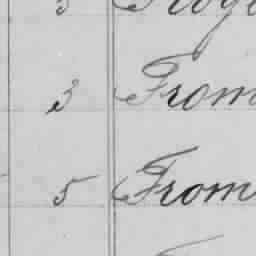 3 From
5 From